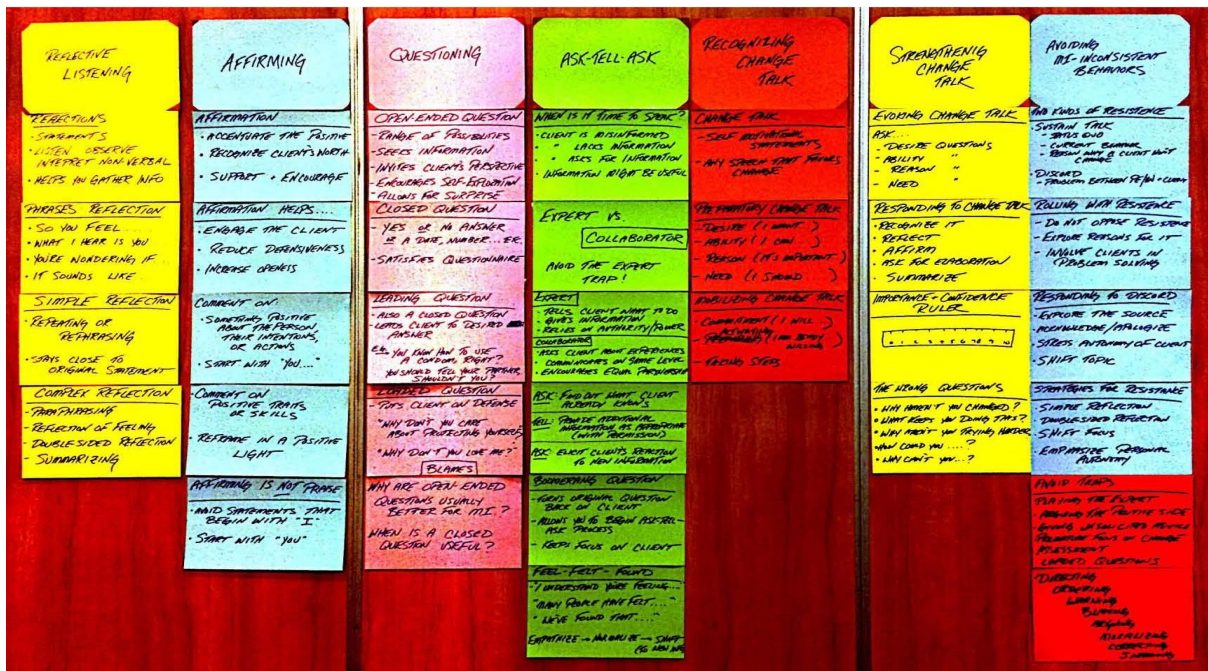 REFLECTIVE
LISTENING
REFLECTIONS
- STATEMENTS
- LISTEN OBSERVE
INTEPRET NON-VERBAL
- HELPS YOU GATHER INFO
PHRASES REFLECTION
- SO YOU FEEL.....
- WHAT I HEAR IS YOU
- YOU'RE WONDERING IF...
- IT SOUNDS LIKE...
SIMPLE REFLECTION
- REPEATING OR
REPHRASING
- STAYS CLOSE TO
ORIGINAL STATEMENT
COMPLEX REFLECTION
- PARAPHRASING
- REFLECTION OF FEELING
- DOUBLESIDED REFLECTION
- SUMMARIZING
AFFIRMING
AFFIRMATION
• ACCENTUATE THE POSITIVE
• RECOGNIZE CLIENT'S WORTH
• SUPPORT + ENCOURAGE
AFFIRMATION HELPS....
• ENGAGE THE CLIENT
• REDUCE DEFENSIVENESS
• INCREASE OPENESS
COMMENT ON:
• SOMETHING POSITIVE
ABOUT THE PERSON,
THEIR INTENTIONS,
OR ACTIONS
• START WITH "YOU..."
• COMMENT ON
POSITIVE TRAITS
OR SKILLS
• REFRAME IN A POSITIVE
LIGHT
AFFIRMING IS NOT PRAISE
• AVOID STATEMENTS THAT
BEGIN WITH "I"
• START WITH "YOU"
QUESTIONING
OPEN-ENDED QUESTION
- RANGE OF POSSIBILITIES
- SEEKS INFORMATION
- INVITES CLIENT'S PERSPECTIVE
- ENCOURAGES SELF-EXPLORATION
- ALLOWS FOR SURPRISE
CLOSED QUESTION
- YES OR NO ANSWER
OR A DATE, NUMBER...
- SATISFIES QUESTIONNAIRE
LEADING QUESTION
- ALSO A CLOSED QUESTION
- LEADS CLIENT TO DESIRED
ANSWER
EX. YOU KNOW HOW TO USE
A CONDOM, RIGHT?
YOU SHOULD TELL YOUR PARTNER,
SHOULDN'T YOU?
LOADED QUESTION
- PUTS CLIENT ON DEFENSE
"WHY DON'T YOU CARE
ABOUT PROTECTING YOURSELF
"WHY DON'T YOU LOVE ME?"
BLAMES
WHY ARE OPEN-ENDED
QUESTIONS USUALLY
BETTER FOR MI?
WHEN IS A CLOSED
QUESTION USEFUL?
ASK-TELL-ASK
WHEN IS IT TIME TO SPEAK?
• CLIENT IS MISINFORMED
• " LACKS INFORMATION
• " ASKS FOR INFORMATION
• INFORMATION MIGHT BE USEFUL
EXPERT VS.
COLLABORATOR
AVOID THE EXPERT
TRAP!
EXPERT
- TELLS CLIENT WHAT TO DO
- GIVES INFORMATION
- RELIES ON AUTHORITY/POWER
COLLABORATOR
- ASKS CLIENT ABOUT EXPERIENCES
- COMMUNICATES ON SAME LEVEL
- ENCOURAGES EQUAL PARTNERSHIP
ASK: FIND OUT WHAT CLIENT
ALREADY KNOWS
TELL: PROVIDE ADDITIONAL
INFORMATION AS APPROPRIATE
(WITH PERMISSION)
ASK: ELICIT CLIENTS REACTION
TO NEW INFORMATION
BOOMERANG QUESTION
- TURNS ORIGINAL QUESTION
BACK ON CLIENT
- ALLOWS YOU TO BEGIN ASK-TELL-
ASK PROCESS
- KEEPS FOCUS ON CLIENT
FEEL-FELT-FOUND
"I UNDERSTAND YOU'RE FEELING...
"MANY PEOPLE HAVE FELT...."
"WE'VE FOUND THAT...."
EMPATHIZE → NORMALIZE → SHIFT
NEW INFO
RECOGNIZING
CHANGE
TALK
CHANGE TALK
- SELF MOTIVATIONAL
STATEMENTS
- ANY SPEECH THAT FAVORS
CHANGE
PREPARATORY CHANGE TALK
- DESIRE (I WANT...)
- ABILITY (I CAN...)
- REASON (IT'S IMPORTANT)
- NEED (I SHOULD )
MOBILIZING CHANGE TALK
- COMMITMENT (I WILL...)
- TAKING STEPS
STRENGTHENIG
CHANGE
TALK
EVOKING CHANGE TALK
ASK...
- DESIRE QUESTIONS
- ABILITY "
- REASON "
- NEED "
RESPONDING TO CHANGE TALK
• RECOGNIZE IT
• REFLECT
• AFFIRM
• ASK FOR ELABORATION
• SUMMARIZE
IMPORTANCE + CONFIDENCE
RULER
0 1 2 3 4 5 6 7 8 9 10
THE WRONG QUESTIONS
• WHY HAVEN'T YOU CHANGED?
• WHAT KEEPS YOU DOING THIS?
• WHY AREN'T YOU TRYING HARDER
• HOW COULD YOU....?
• WHY CAN'T YOU...?
AVOIDING
MI-INCONSISTENT
BEHAVIORS
TWO KINDS OF RESISTENCE
SUSTAIN TALK
- STATUS QUO
- CURRENT BEHAVIOR
- REASON WHY A CLIENT WON'T
CHANGE
DISCORD
- PROBLEM BETWEEN + CLIENT
ROLLING WITH RESISTENCE
- DO NOT OPPOSE RESISTENCE
- EXPLORE REASONS FOR IT
- INVOLVE CLIENTS IN
PROBLEM SOLVING
RESPONDING TO DISCORD
- EXPLORE THE SOURCE
- ACKNOWLEDGE/APOLOGIZE
- STRESS AUTONOMY OF CLIENT
- SHIFT TOPIC
STRATEGIES FOR RESISTANCE
- SIMPLE REFLECTION
- DOUBLESIDED REFLECTION
- SHIFT FOCUS
- EMPHASIZE PERSONAL
AUTONOMY
AVOID TRAPS
- PLAYING THE EXPERT
- ARGUING THE POSITIVE SIDE
- GIVING UNSOLICITED ADVICE
- PREMATURE FOCUS ON CHANGE
ASSESSMENT
LOADED QUESTIONS
DIRECTING
ORDERING
WARNING
BLAMING
ARGUING
MORALIZING